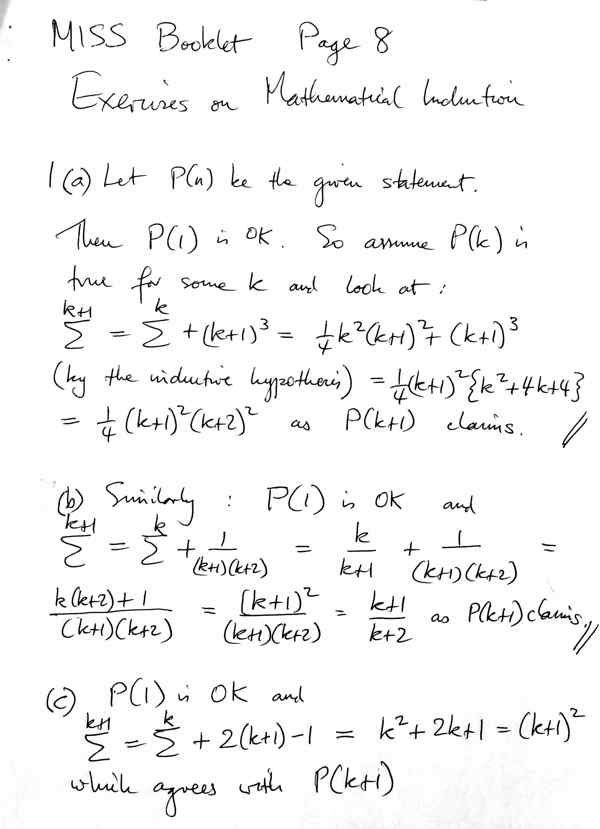 MISS Booklet Page 8
Exercises on Mathematical Induction
1(a) Let P(n) be the given statement.
Then P(1) is OK. So assume P(k) is
true for some k and look at:
∑^{k+1} = ∑^{k} + (k+1)³ = ¼k²(k+1)² + (k+1)³
(by the inductive hypothesis) = ¼(k+1)²{k²+4k+4}
= ¼(k+1)²(k+2)² as P(k+1) claims. //
(b) Similarly : P(1) is OK and
∑^{k+1} = ∑^{k} + 1/((k+1)(k+2)) = k/(k+1) + 1/((k+1)(k+2)) =
(k(k+2)+1)/((k+1)(k+2)) = (k+1)²/((k+1)(k+2)) = (k+1)/(k+2) as P(k+1) claims. //
(c) P(1) is OK and
∑^{k+1} = ∑^{k} + 2(k+1)-1 = k²+2k+1 = (k+1)²
which agrees with P(k+1)